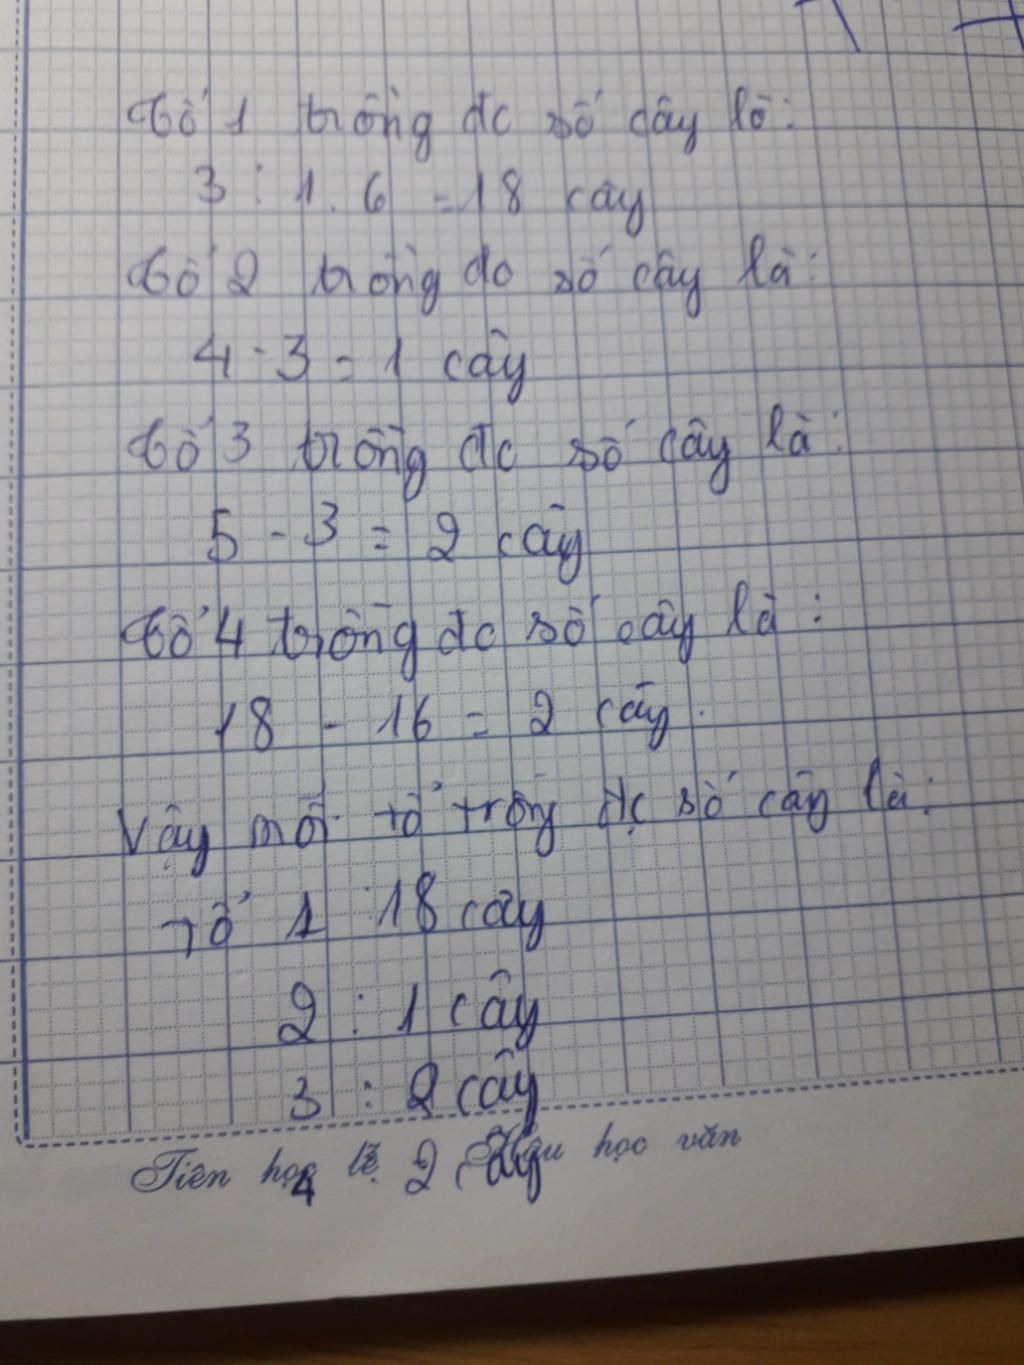 Tổ 1 trồng đc số cây là:
3 : 1 . 6 = 18 cây
Tổ 2 trồng đc số cây là:
4 - 3 = 1 cây
Tổ 3 trồng đc số cây là:
5 - 3 = 2 cây
Tổ 4 trồng đc số cây là:
18 - 16 = 2 cây.
Vậy mỗi tổ trồng đc số cây là:
Tổ 1 : 18 cây
2 : 1 cây
3 : 2 cây
Tiên học lễ, Hậu học văn
4 2 cây